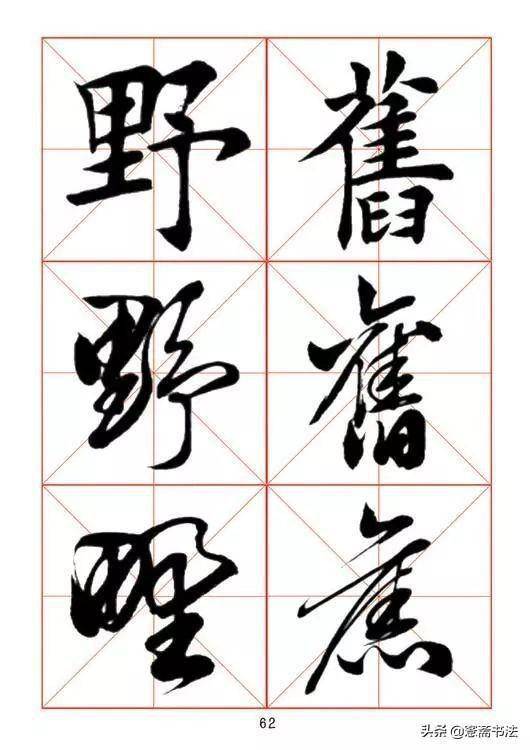 舊舊舊
野野野
62
头条 @愙斋书法